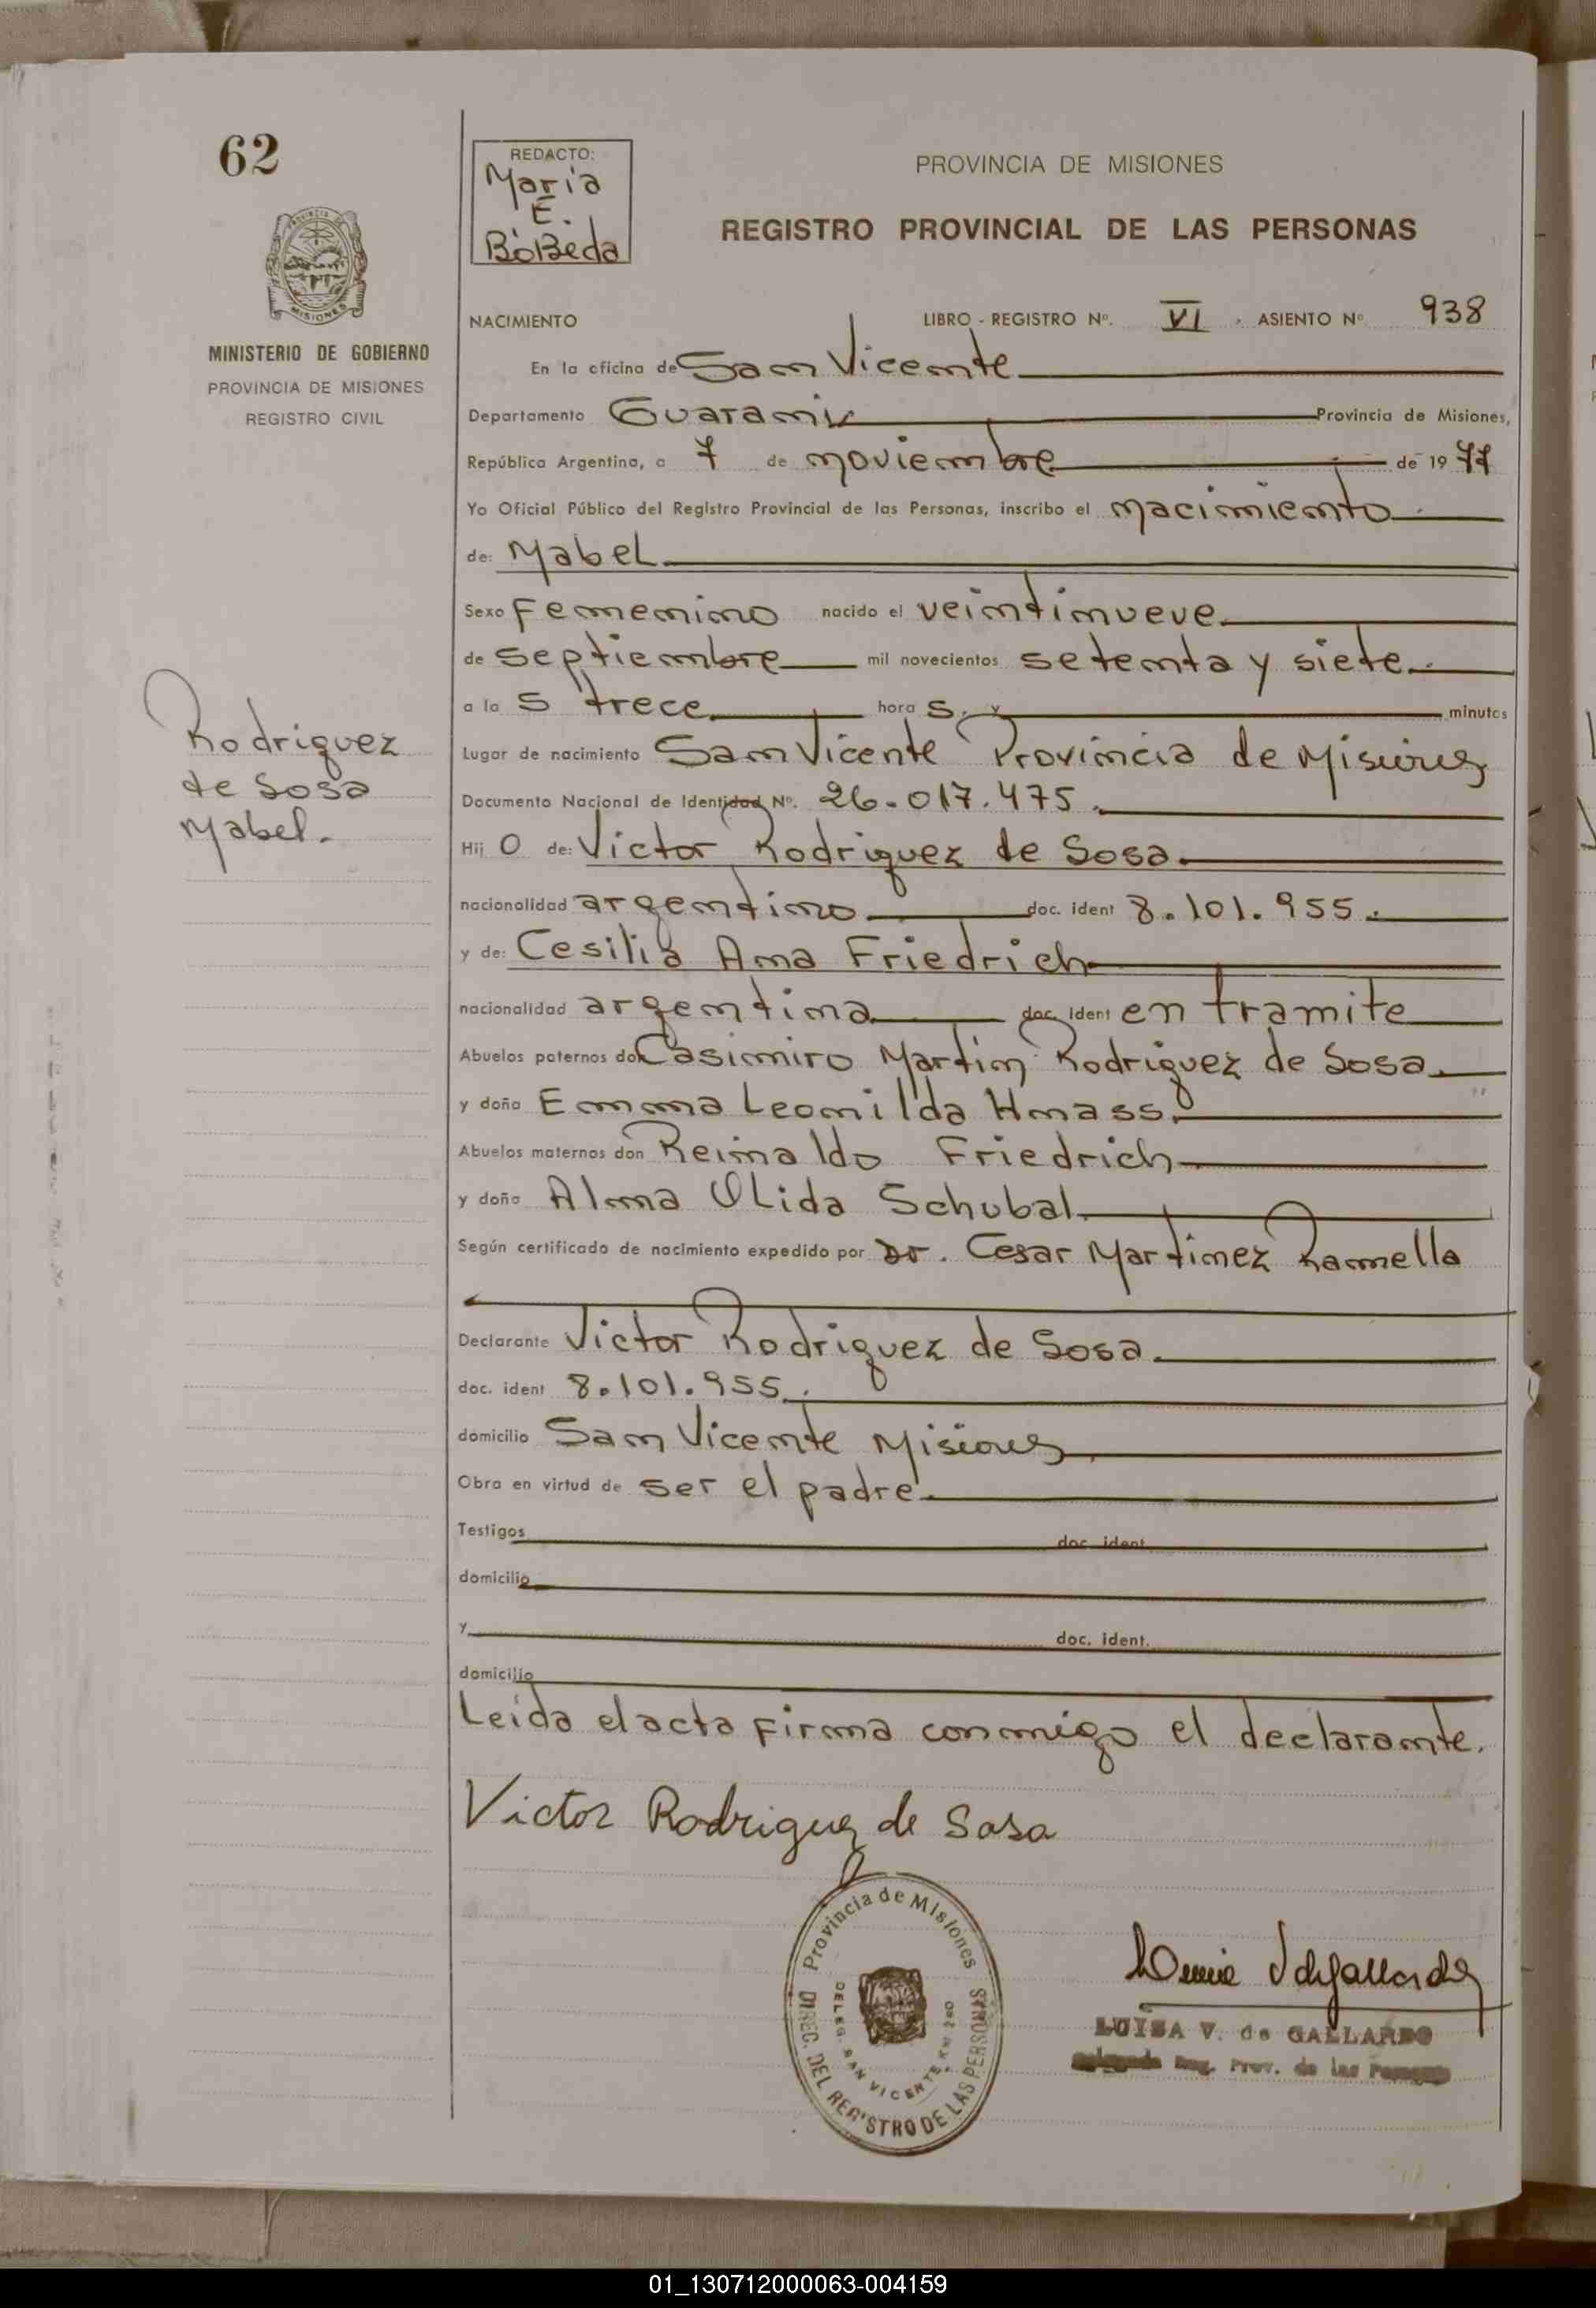 62
REDACTO:
Maria
E.
BoBeda
PROVINCIA DE MISIONES
REGISTRO PROVINCIAL DE LAS PERSONAS
MISIONES
MINISTERIO DE GOBIERNO
PROVINCIA DE MISIONES
REGISTRO CIVIL
NACIMIENTO LIBRO - REGISTRO Nº. VI. ASIENTO Nº 938
En la oficina de San Vicente
Departamento Guarani Provincia de Misiones,
República Argentina, a 7 de noviembre de 1977
Yo Oficial Público del Registro Provincial de las Personas, inscribo el nacimiento
de: Mabel
Sexo Femenino nacido el veintinueve
de septiembre mil novecientos setenta y siete.
a la s trece hora s. y minutos
Lugar de nacimiento San Vicente Provincia de Misiones
Documento Nacional de Identidad Nº. 26.017.475.
Hij o de: Victor Rodriguez de Sosa
nacionalidad argentino doc. ident 8.101.955.
y de: Cesilia Ana Friedrich
nacionalidad argentina doc. ident en tramite
Abuelos paternos don Casimiro Martin Rodriguez de Sosa
y doña Emma Leonilda Hnass
Abuelos maternos don Reinaldo Friedrich
y doña Alma Olida Schubal
Según certificado de nacimiento expedido por Dr. Cesar Martinez Ramella
Declarante Victor Rodriguez de Sosa
doc. ident 8.101.955.
domicilio San Vicente Misiones
Obra en virtud de ser el padre
Testigos doc. ident
domicilio
y doc. ident.
domicilio
Leida el acta firma conmigo el declarante.
Victor Rodriguez de Sosa
Rodriguez
de Sosa
Mabel.
Provincia de Misiones
DIREC. DEL REGISTRO DE LAS PERSONAS
DELEG. SAN VICENTE
LUISA V. de GALLARDO
Delegada Reg. Prov. de las Personas
01_130712000063-004159